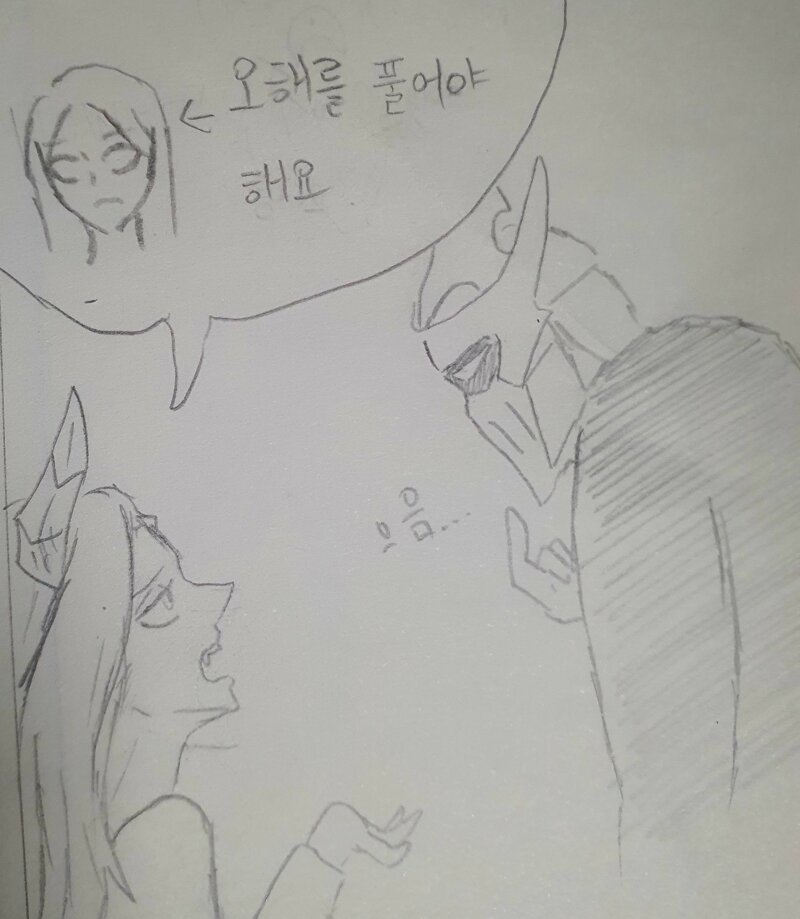 ← 오해를 풀어야
해요
으음...